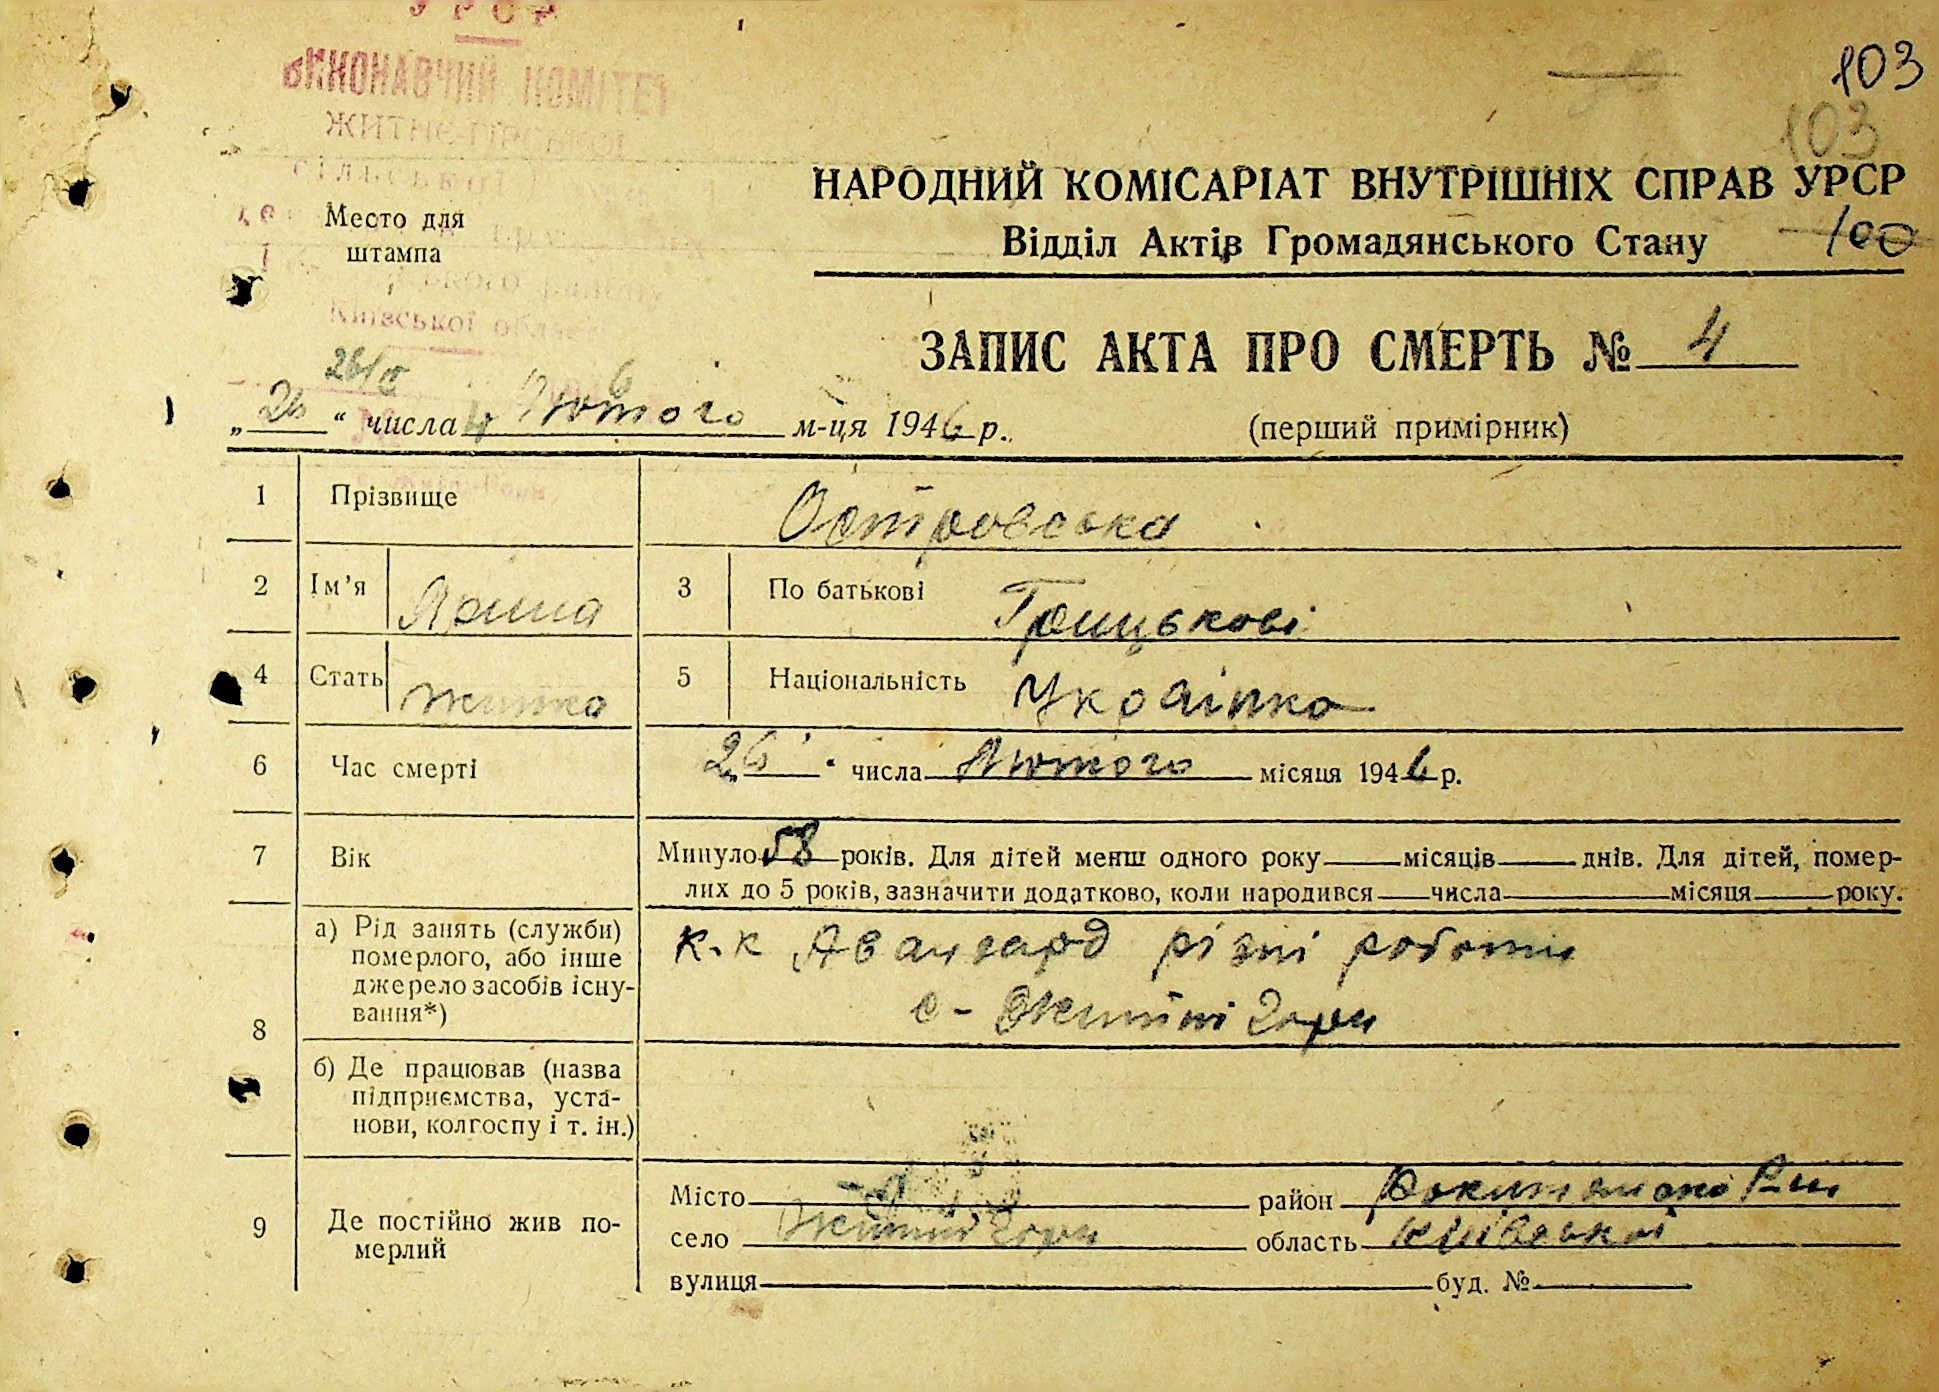 УРСР
ВИКОНАВЧИЙ КОМІТЕТ
103
103
Київської
НАРОДНИЙ КОМІСАРІАТ ВНУТРІШНІХ СПРАВ УРСР
Место для
штампа
Відділ Актів Громадянського Стану
100
ЗАПИС АКТА ПРО СМЕРТЬ № 4
26/II
„26“ числа Лютого м-ця 1946 р.
(перший примірник)
1 Прізвище Островська
2 Ім'я Ярина 3 По батькові Грицькові
4 Стать жінка 5 Національність Українка
6 Час смерті 26 числа Лютого місяця 1946 р.
7 Вік Минуло 58 років. Для дітей менш одного року місяців днів. Для дітей, помер-
лих до 5 років, зазначити додатково, коли народився числа місяця року.
8 а) Рід занять (служби)
померлого, або інше
джерело засобів існу-
вання*)
к-к Авангард різні роботи
с- Житні Гори
б) Де працював (назва
підприємства, уста-
нови, колгоспу і т. ін.)
9 Де постійно жив по-
мерлий
Місто район
село Житні Гори область Київської
вулиця буд. №